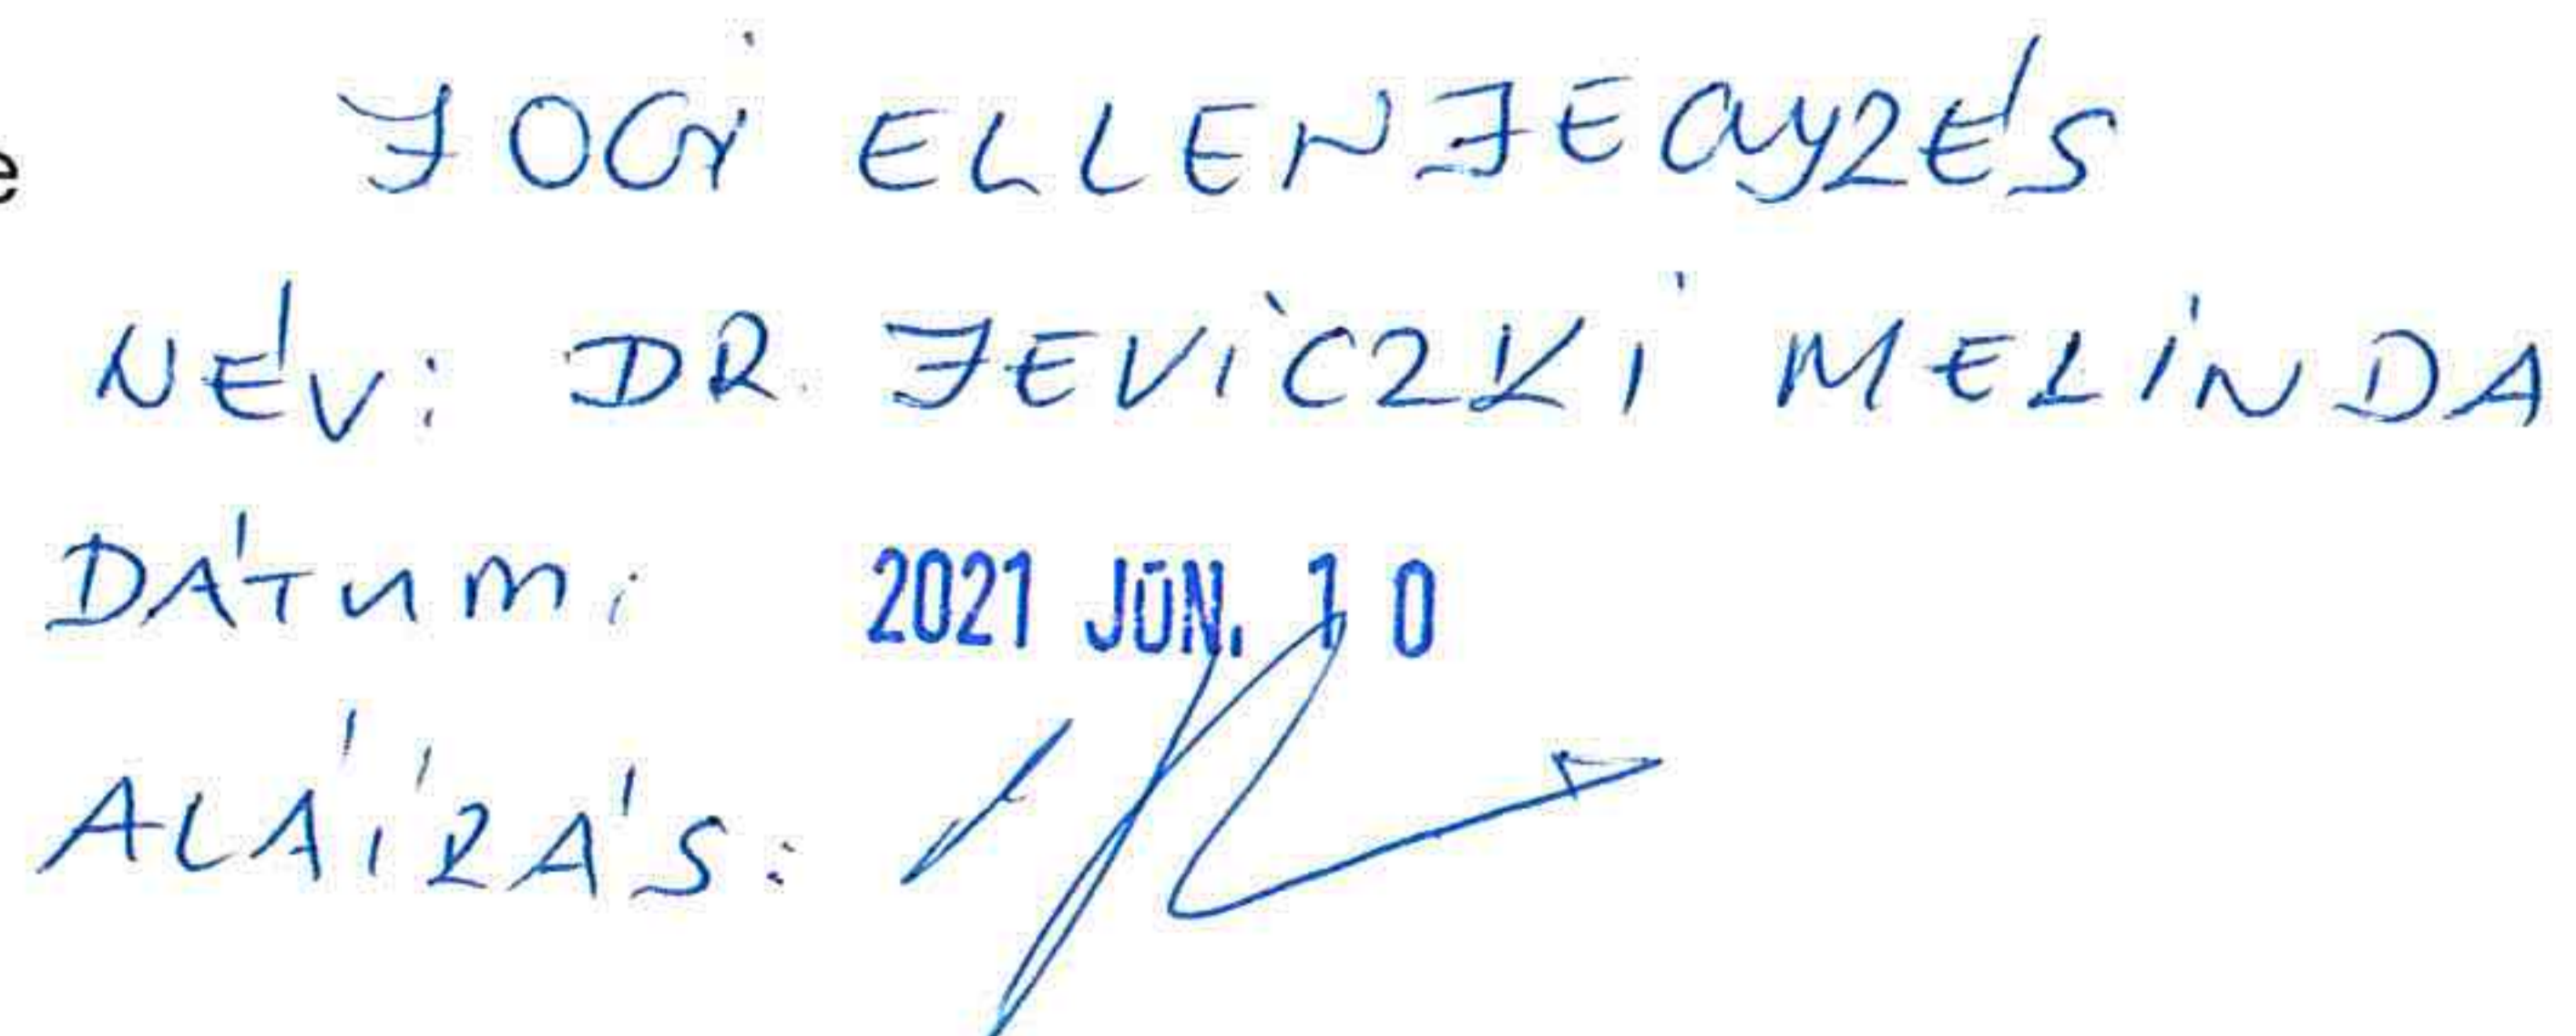 e JOGI ELLENJEGYZÉS
NÉV: DR. JEVICZKI MELINDA
DÁTUM: 2021 JÚN. 10
ALÁÍRÁS: